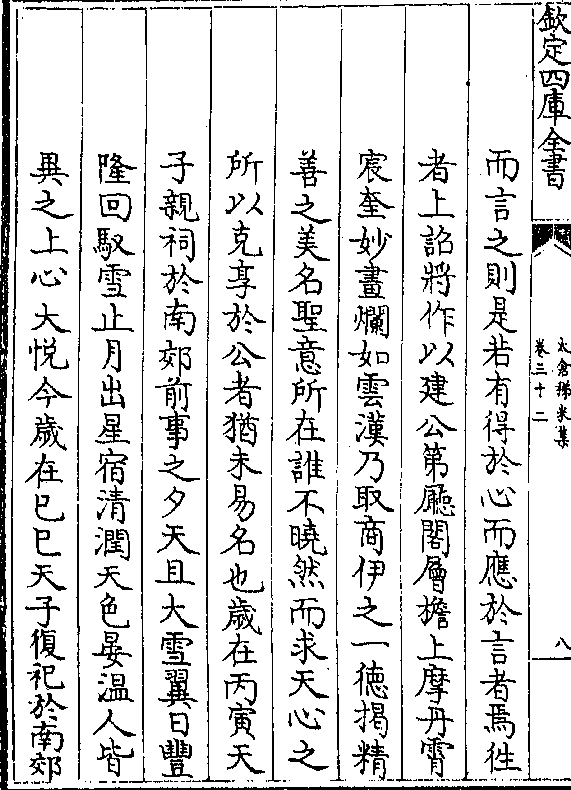 欽定四庫全書
太倉稊米集
卷三十二
八
而言之則是若有得於心而應於言者焉徃
者上詔將作以建公第廳閣層檐上摩丹霄
宸奎妙畫爛如雲漢乃取商伊之一德揭精
善之美名聖意所在誰不曉然而求天心之
所以克享於公者猶未易名也歳在丙寅天
子親祠於南郊前事之夕天且大雪翼日豐
隆回馭雪止月出星宿清潤天色晏温人皆
異之上心大悦今歳在己巳天子復祀於南郊